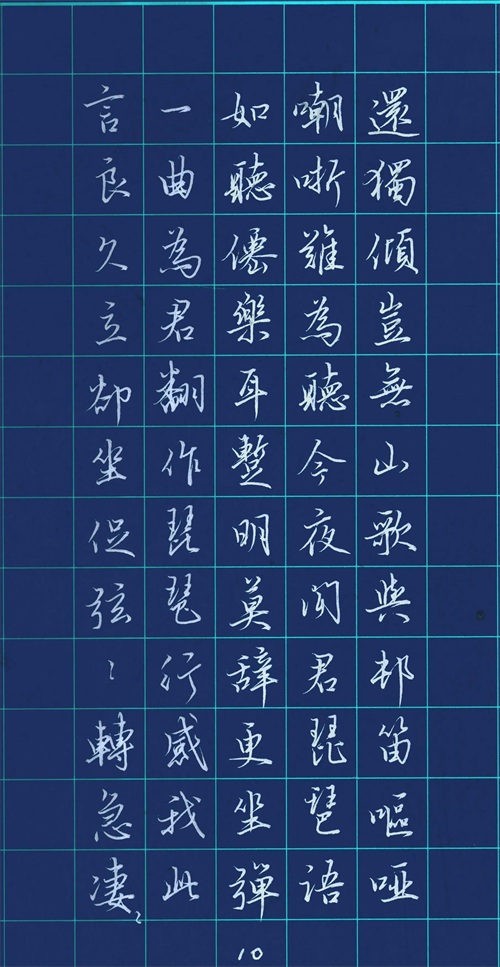 還獨傾豈無山歌與邨笛嘔哑
嘲哳難為聽今夜聞君琵琶語
如聽僊樂耳暫明莫辭更坐彈
一曲為君翻作琵琶行感我此
言良久立卻坐促弦〻轉急凄〻
10